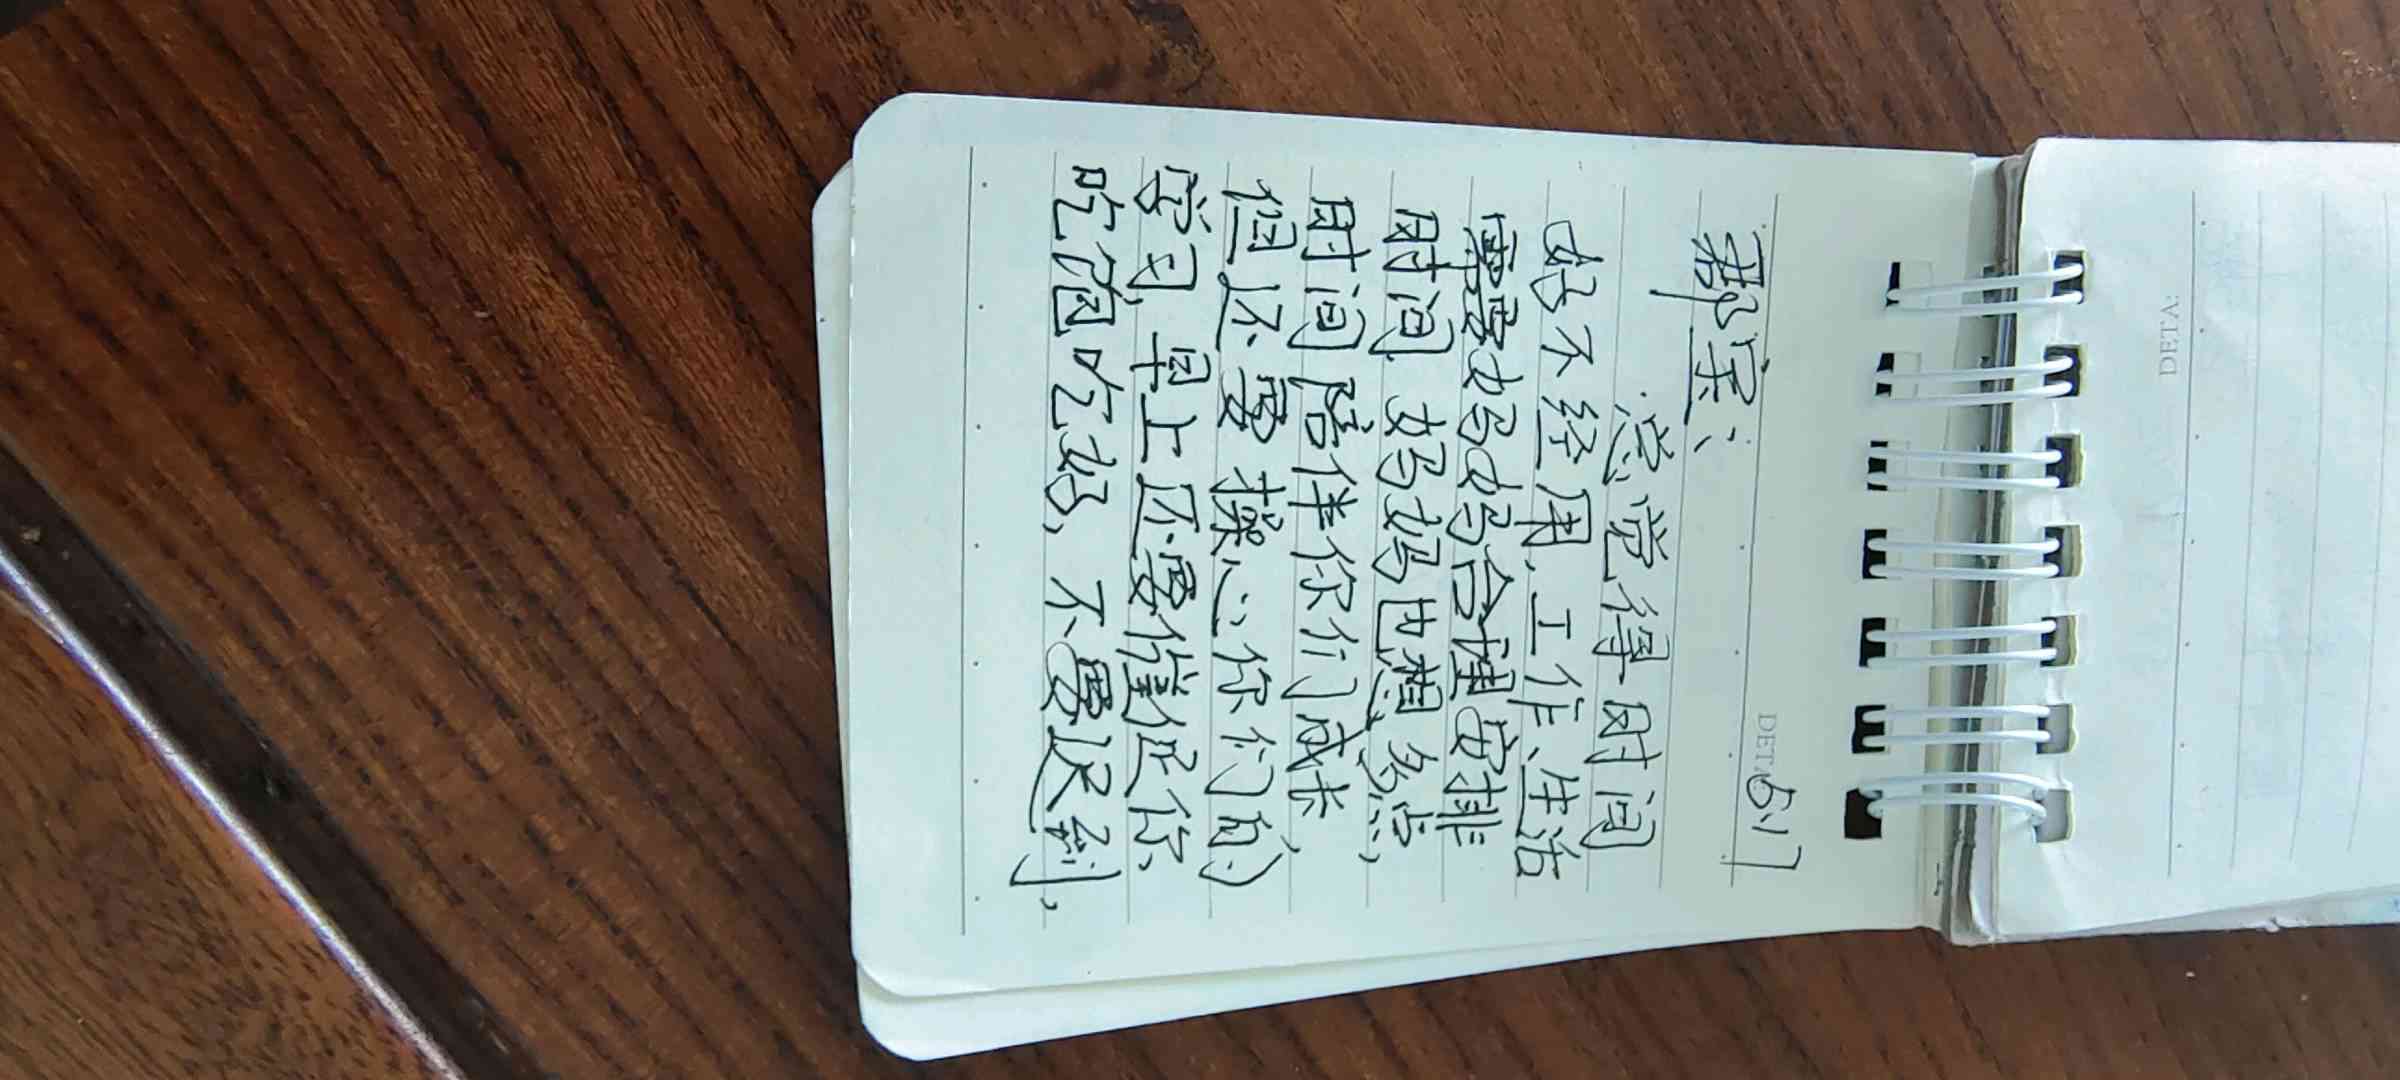 DETA: 6.17
郡宝：
感觉得时间
好不经用，工作、生活
需要妈妈合理安排
时间，妈妈也想多点
时间陪伴你们成长，
但还要操心你们的
学习，早上还要催促你
吃饱吃好，不要迟到。
DETA: